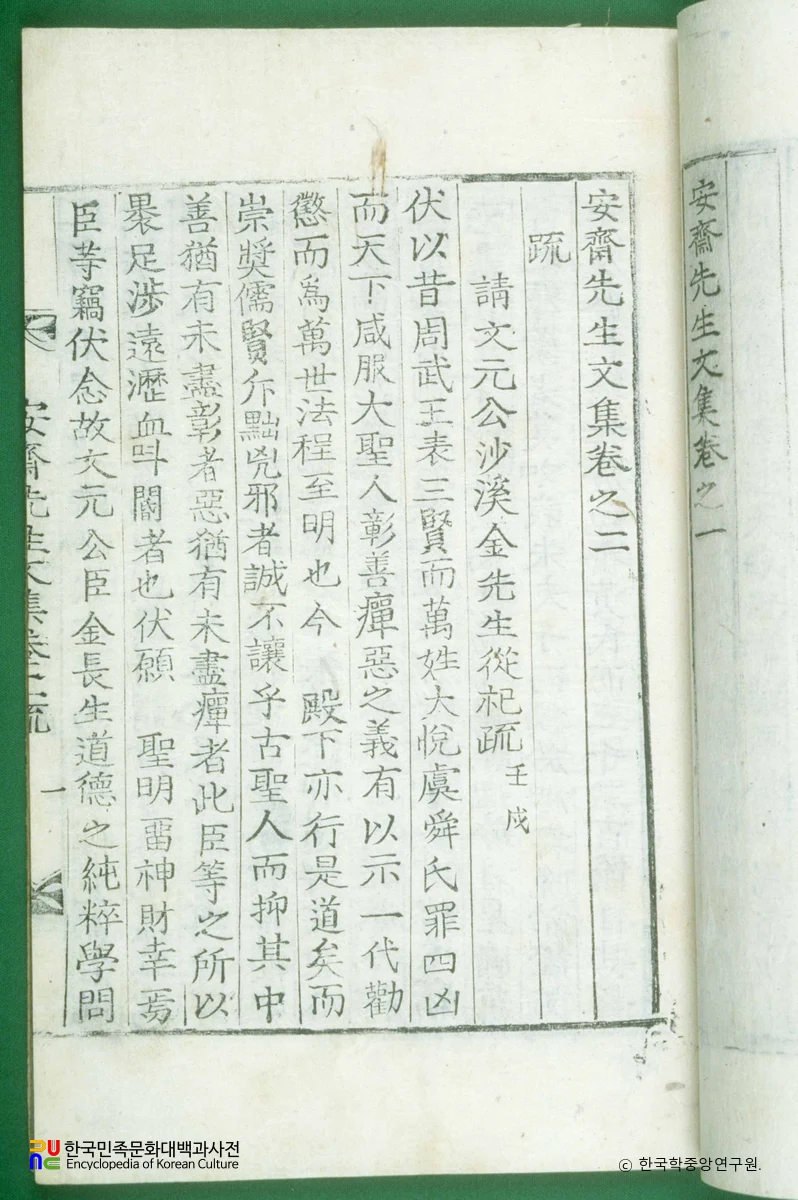 安齋先生文集卷之一
安齋先生文集卷之二
疏
請文元公沙溪金先生從祀疏 壬戌
伏以昔周武王表三賢而萬姓大悅虞舜氏罪四凶
而天下咸服大聖人彰善癉惡之義有以示一代勸
懲而爲萬世法程至明也今 殿下亦行是道矣而
崇奬儒賢斥黜兇邪者誠不讓乎古聖人而抑其中
善猶有未盡彰者惡猶有未盡癉者此臣等之所以
褁足涉遠瀝血叫閽者也伏願 聖明畱神財幸焉
臣等竊伏念故文元公臣金長生道德之純粹學問
安齋先生文集卷之二 疏 一
한국민족문화대백과사전
Encyclopedia of Korean Culture
© 한국학중앙연구원.